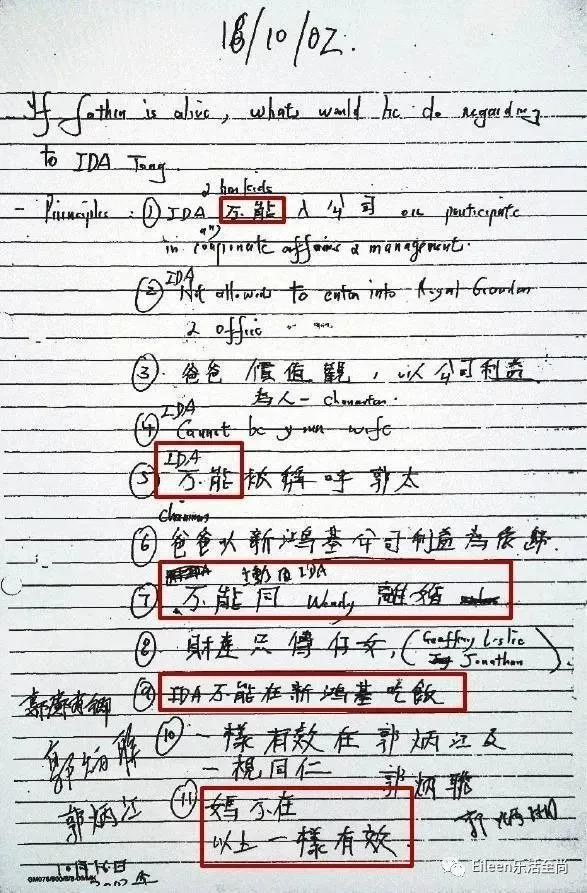 16/10/02.
If father is alive, what would he do regarding
to IDA Tang.
2 her kids
- Principles : ① IDA 不能入公司 or participate
any
in corporate affairs & management.
IDA
② Not allowed to enter into Royal Garden
& office
③ 爸爸價值觀，以公司利益
為人-character.
IDA
④ Cannot be your wife
IDA
⑤ 不能被稱呼郭太
chairman
⑥ 爸爸以新鴻基公司利益為依歸.
主動因IDA
⑦ 不能同 Wendy 離婚
⑧ 財產只傳仔女, (Geoffrey Leslie
Jonathan).
⑨ IDA 不能在新鴻基吃飯
⑩ 一樣有效在郭炳江及
一視同仁 郭炳聯
⑪ 媽不在
以上一樣有效.
郭炳聯
郭炳江
郭炳湘
10月16日
2002年
GM076/800/B/8-00/MK
Eileen乐活至尚